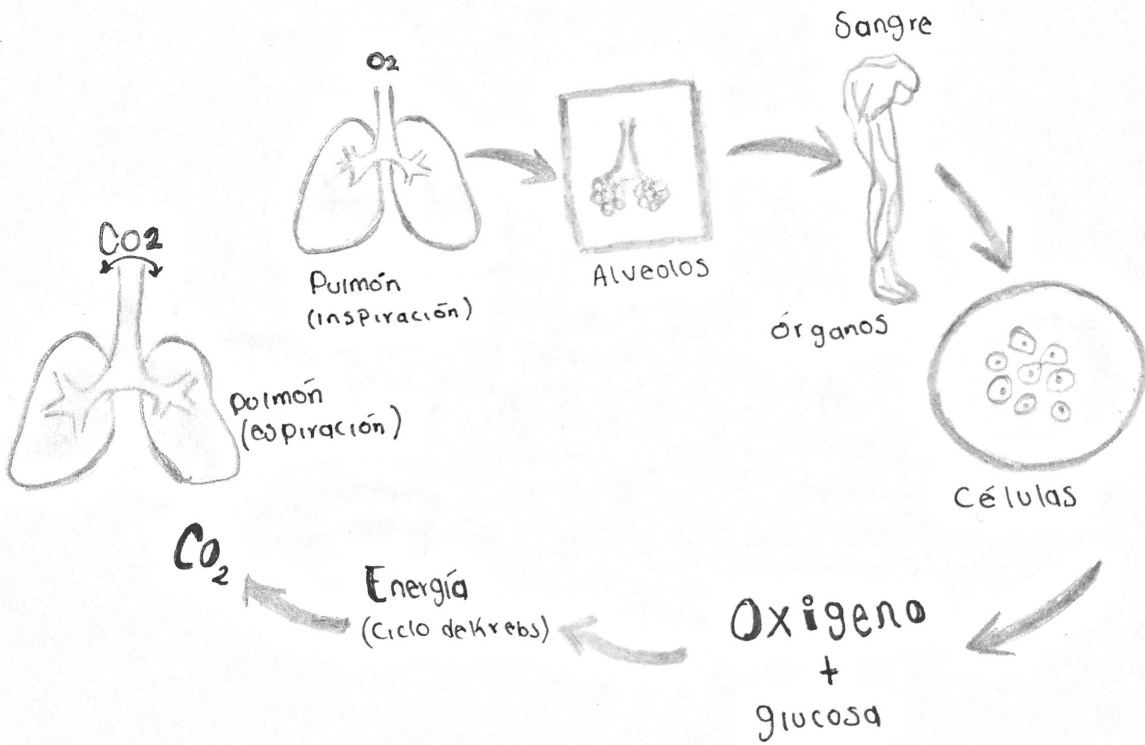 O2
Pulmón
(inspiración)
Alveolos
Sangre
órganos
Células
Oxigeno
+
glucosa
Energía
(Ciclo de Krebs)
CO2
CO2
pulmón
(espiración)